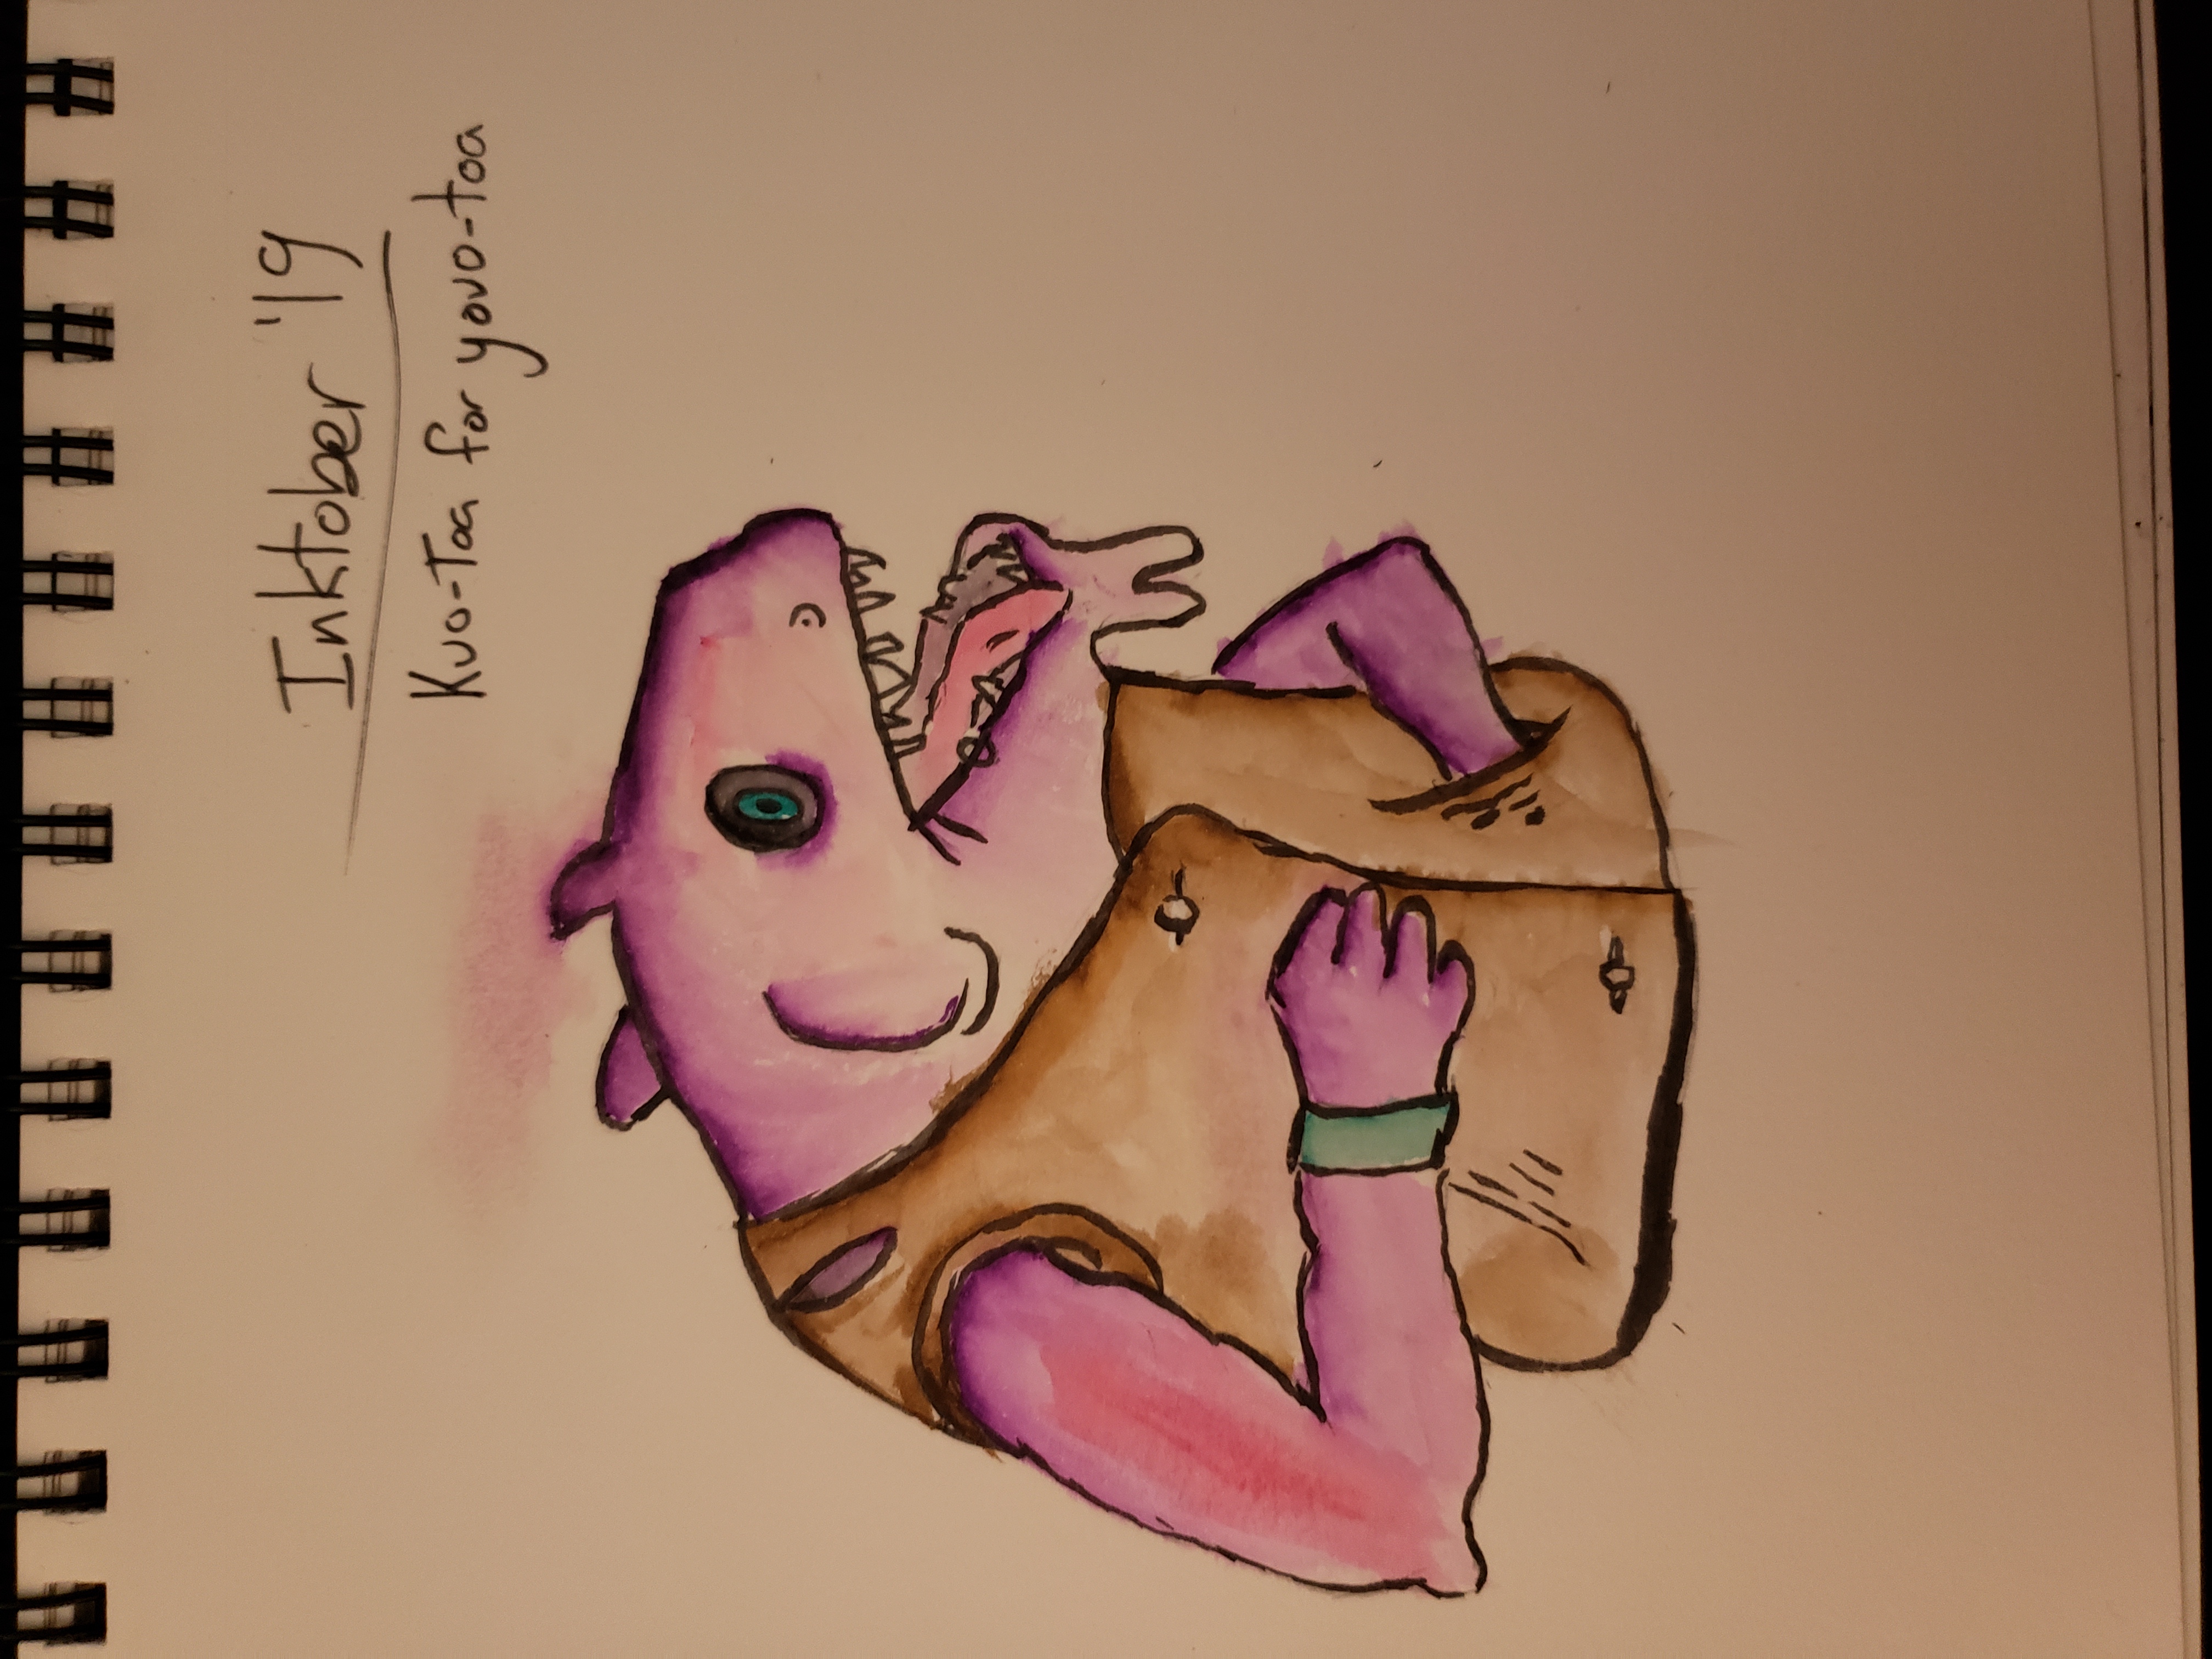 Inktober '19
Kuo-Toa for youo-toa